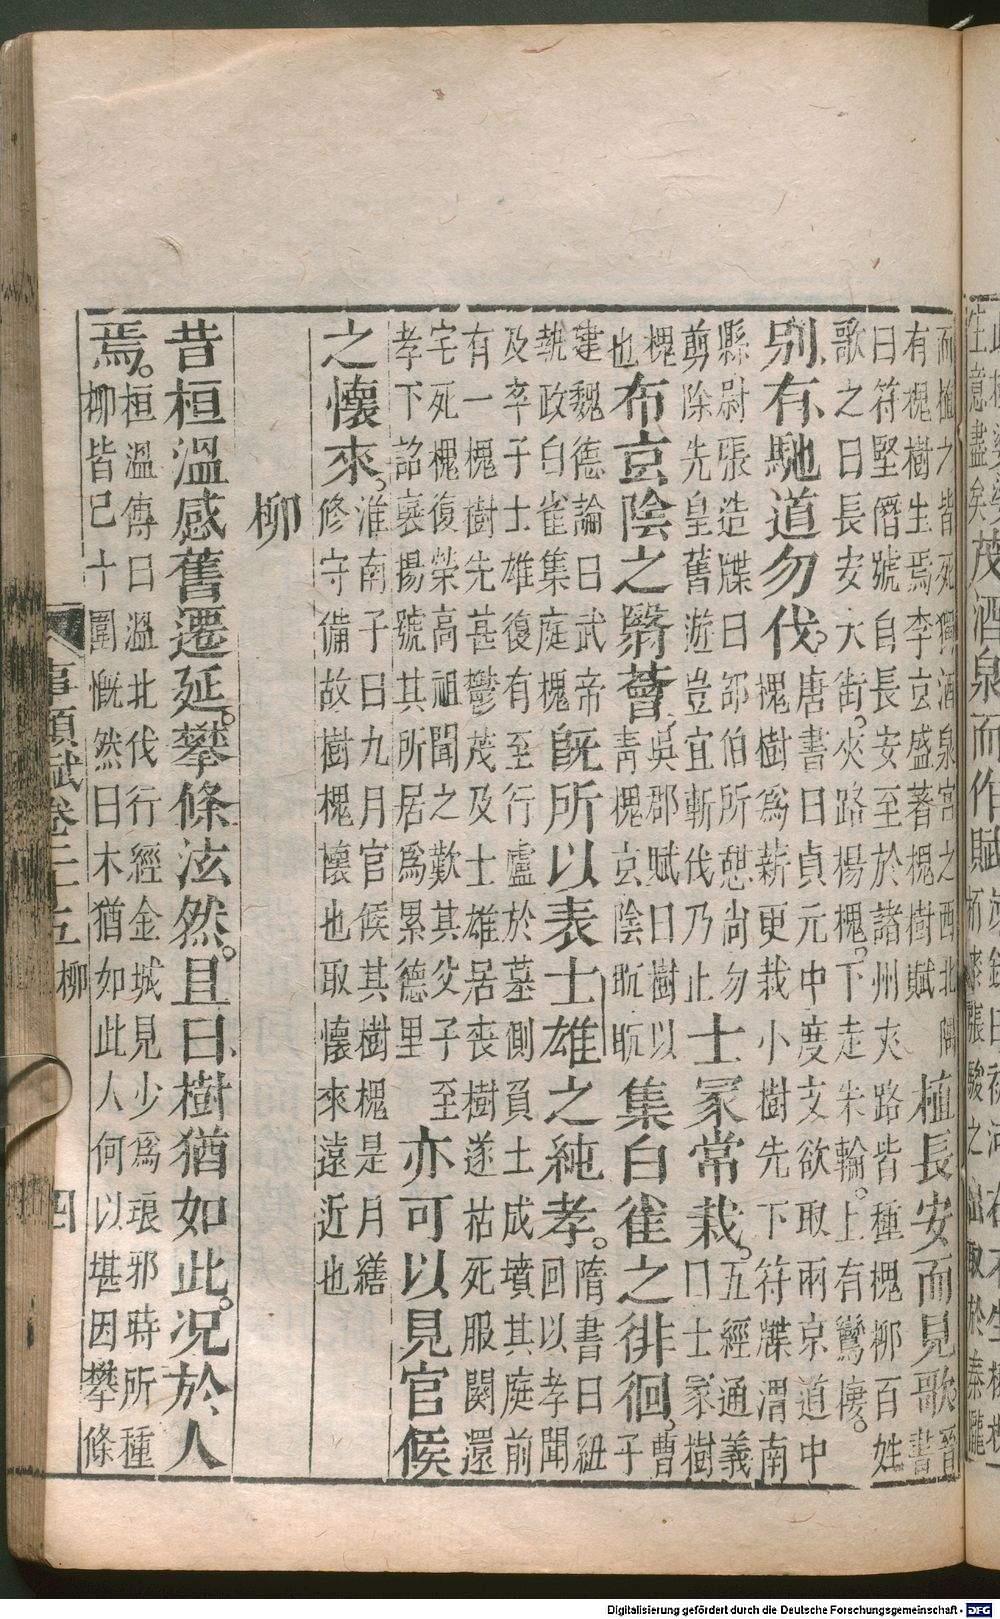 生意盡矣
茂酒泉而作賦
而植之皆死獨酒泉宮之西北隅
有槐樹生焉李玄盛著槐樹賦
植長安而見歌
晉
書
曰符堅僭號自長安至於諸州夾路皆種槐柳百姓
歌之曰長安大街。夾路楊槐。下走朱輪。上有鸞棲。
別有馳道勿伐。
唐書曰貞元中度支欲取兩京道中
槐樹為薪更栽小樹先下符牒渭南
縣尉張造牒曰邵伯所憩尚勿
剪除先皇舊遊豈宜斬伐乃止
士冢常栽。
五經通義
曰士冢樹
槐
也
布玄陰之翳薈。
吳郡賦曰樹以
青槐玄陰眈眈
集白雀之徘徊。
曹
子
建魏德論曰武帝
執政白雀集庭槐
既所以表士雄之純孝。
隋書曰紐
回以孝聞
及卒子士雄復有至行廬於墓側負土成墳其庭前
有一槐樹先甚鬱茂及士雄居喪樹遂枯死服闋還
宅死槐復榮高祖聞之歎其父子至
孝下詔褒揚號其所居為累德里
亦可以見官候
之懷來。
淮南子曰九月官候其樹槐是月繕
修守備故樹槐懷也取懷來遠近也
柳
昔桓溫感舊遷延。攀條泫然。且曰、樹猶如此。況於人
焉。
桓溫傳曰溫北伐行經金城見少為琅邪時所種
柳皆已十圍慨然曰木猶如此人何以堪因攀條
事類賦卷二十五 柳 四
Digitalisierung gefördert durch die Deutsche Forschungsgemeinschaft - DFG